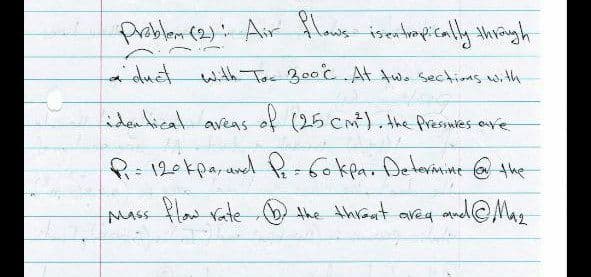 Problem (2): Air flows isentropically through
a duct with To= 300°C. At two sections with
identical areas of (25 cm²). the Pressures are
P₁ = 120kpa, and P₂ = 60kpa. Determine @ the
Mass flow rate ⓑ the throat area and © Ma₂